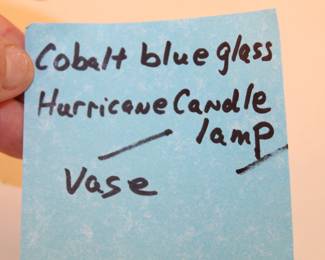 Cobalt blue glass
Hurricane Candle
lamp
Vase